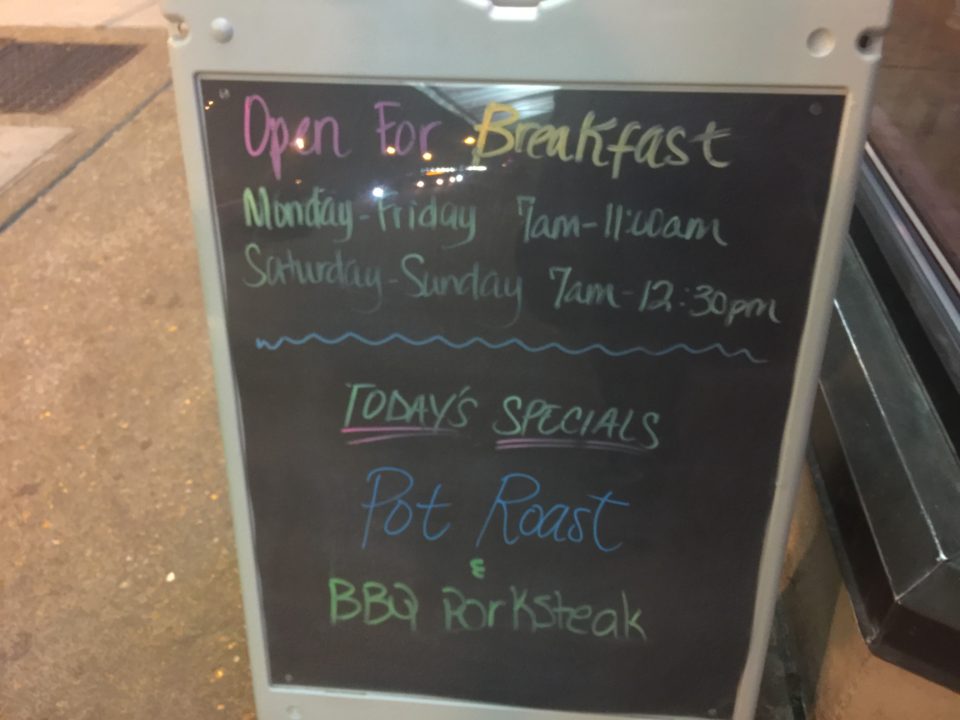 Open For Breakfast
Monday-Friday 7am-11:00am
Saturday-Sunday 7am-12:30pm
TODAY'S SPECIALS
Pot Roast
&
BBQ Porksteak